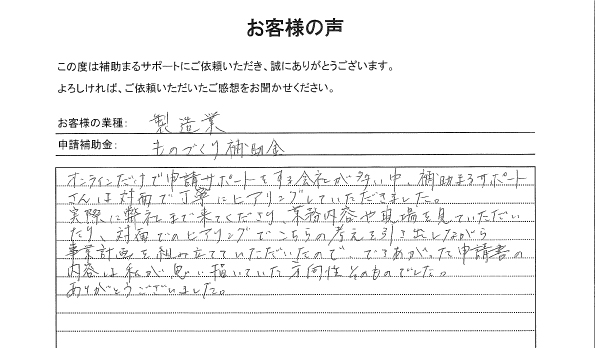 お客様の声
この度は補助まるサポートにご依頼いただき、誠にありがとうございます。
よろしければ、ご依頼いただいたご感想をお聞かせください。
お客様の業種: 製造業
申請補助金: ものづくり補助金
オンラインだけで申請サポートをする会社が多い中、補助まるサポート
さんは対面で丁寧にヒアリングしていただきました。
実際に弊社まで来てくださり、業務内容や現場を見ていただい
たり、対面でのヒアリングでこちらの考えを引き出しながら
事業計画を組み立ていただいたので できあがった申請書の
内容は私が思い描いていた方向性そのものでした。
ありがとうございました。